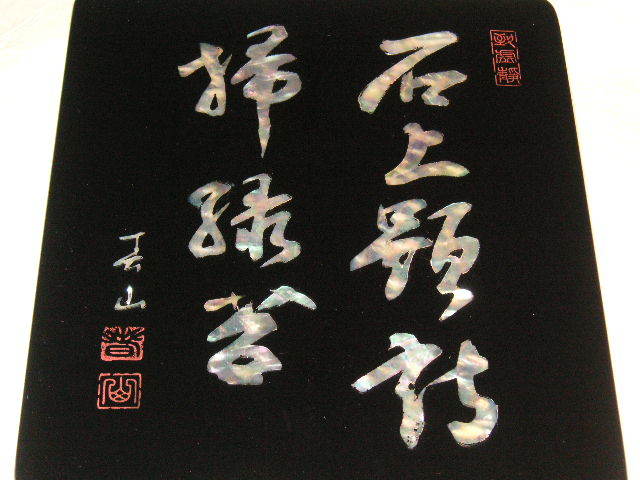 石上題詩
掃綠苔
春山